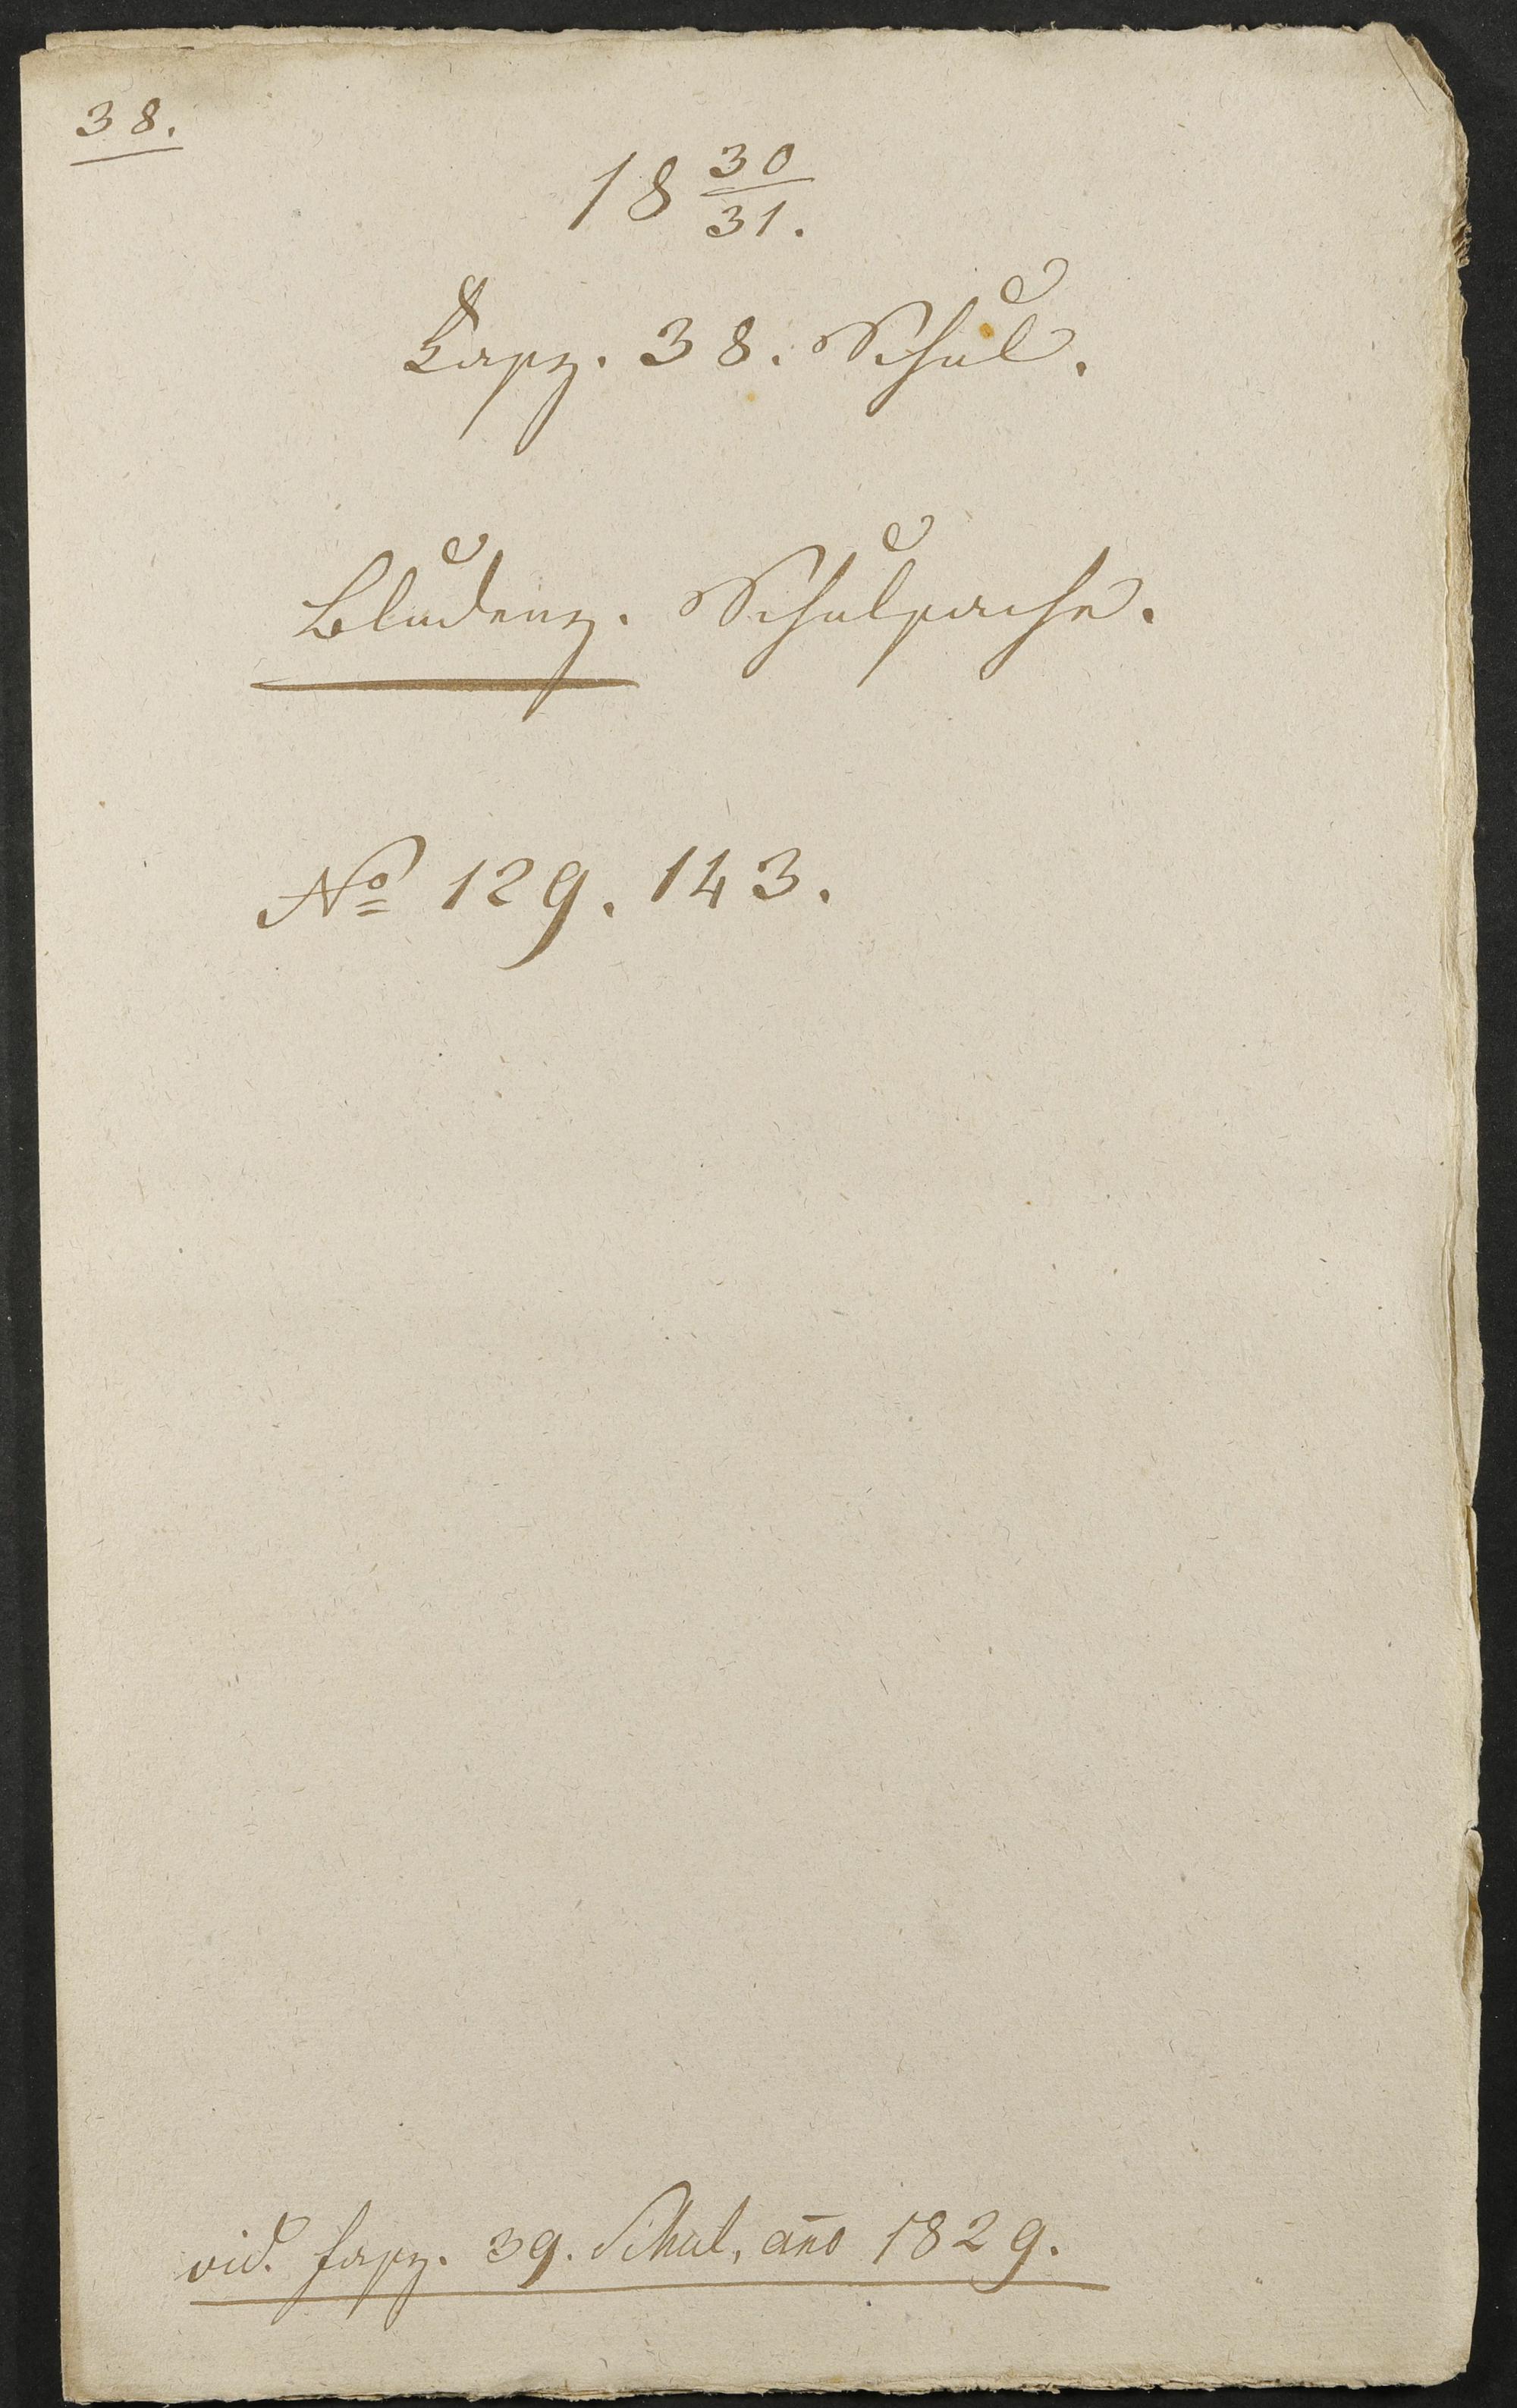 38.
18 30/31.
Fasz. 38. Schul.
Bludenz. Schulsache.
No 129. 143.
vid. fasz. 39. Schul, año 1829.